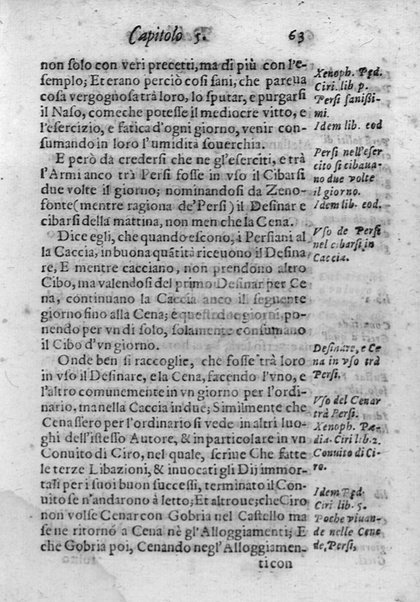 Capitolo 5. 63
non solo con veri precetti, ma di più con l'e-
semplo; Et erano perciò così sani, che pareua
cosa vergognosa trà loro, lo sputar, e purgarsi
il Naso, comeche potesse il mediocre vitto, e
l'esercizio, e fatica d'ogni giorno, venir con-
sumando in loro l'umidità souerchia.
E però da credersi che ne gl'eserciti, e trà
l'Armi anco trà Persi fosse in vso il Cibarsi
due volte il giorno; nominandosi da Zeno-
fonte (mentre ragiona de'Persi) il Desinar e
cibarsi della mattina, non men che la Cena.
Dice egli, che quando escono, i Persiani al
la Caccia, in buona quãtità riceuono il Desina
re, E mentre cacciano, non prendono altro
Cibo, ma valendosi del primo Desinar per Ce
na, continuano la Caccia anco il seguente
giorno sino alla Cena; e questi due giorni, po-
nendo per vn di solo, solamente consumano
il Cibo d'vn giorno.
Onde ben si raccoglie, che fosse trà loro
in vso il Desinare, e la Cena, facendo l'vno, e
l'altro comunemente in vn giorno per l'ordi-
nario, ma nella Caccia in due; Similmente che
Cenassero per l'ordinario si vede in altri luo-
ghi dell'istesso Autore, & in particolare in vn
Conuito di Ciro, nel quale, scriue Che fatte
le terze Libazioni, & inuocati gli Dij immor-
tali per i suoi buon successi, terminato il Con-
uito se n'andarono à letto; Et altroue; che Ciro
non volse Cenar con Gobria nel Castello ma
se ne ritornò a Cena nè gl'Alloggiamenti; E
che Gobria poi, Cenando negl'Alloggiamen-
ti con
Xenoph. Pęd.
Ciri lib. p.
Persi sanissi-
mi.
Idem lib. eod
Persi nell'eser
cito si cibaua-
no due volte
il giorno.
Idem lib. eod.
Vso de Persi
nel cibarsi in
Caccia.
Desinare, e Ce
na in vso trà
Persi.
Vso del Cenar
trà Persi.
Xenoph. Pæ-
dia. Ciri lib. 2.
Conuito di Ci-
ro.
Idem Pęd.
Ciri lib. 5.
Poche viuan-
de nelle Cene
de, Persi,